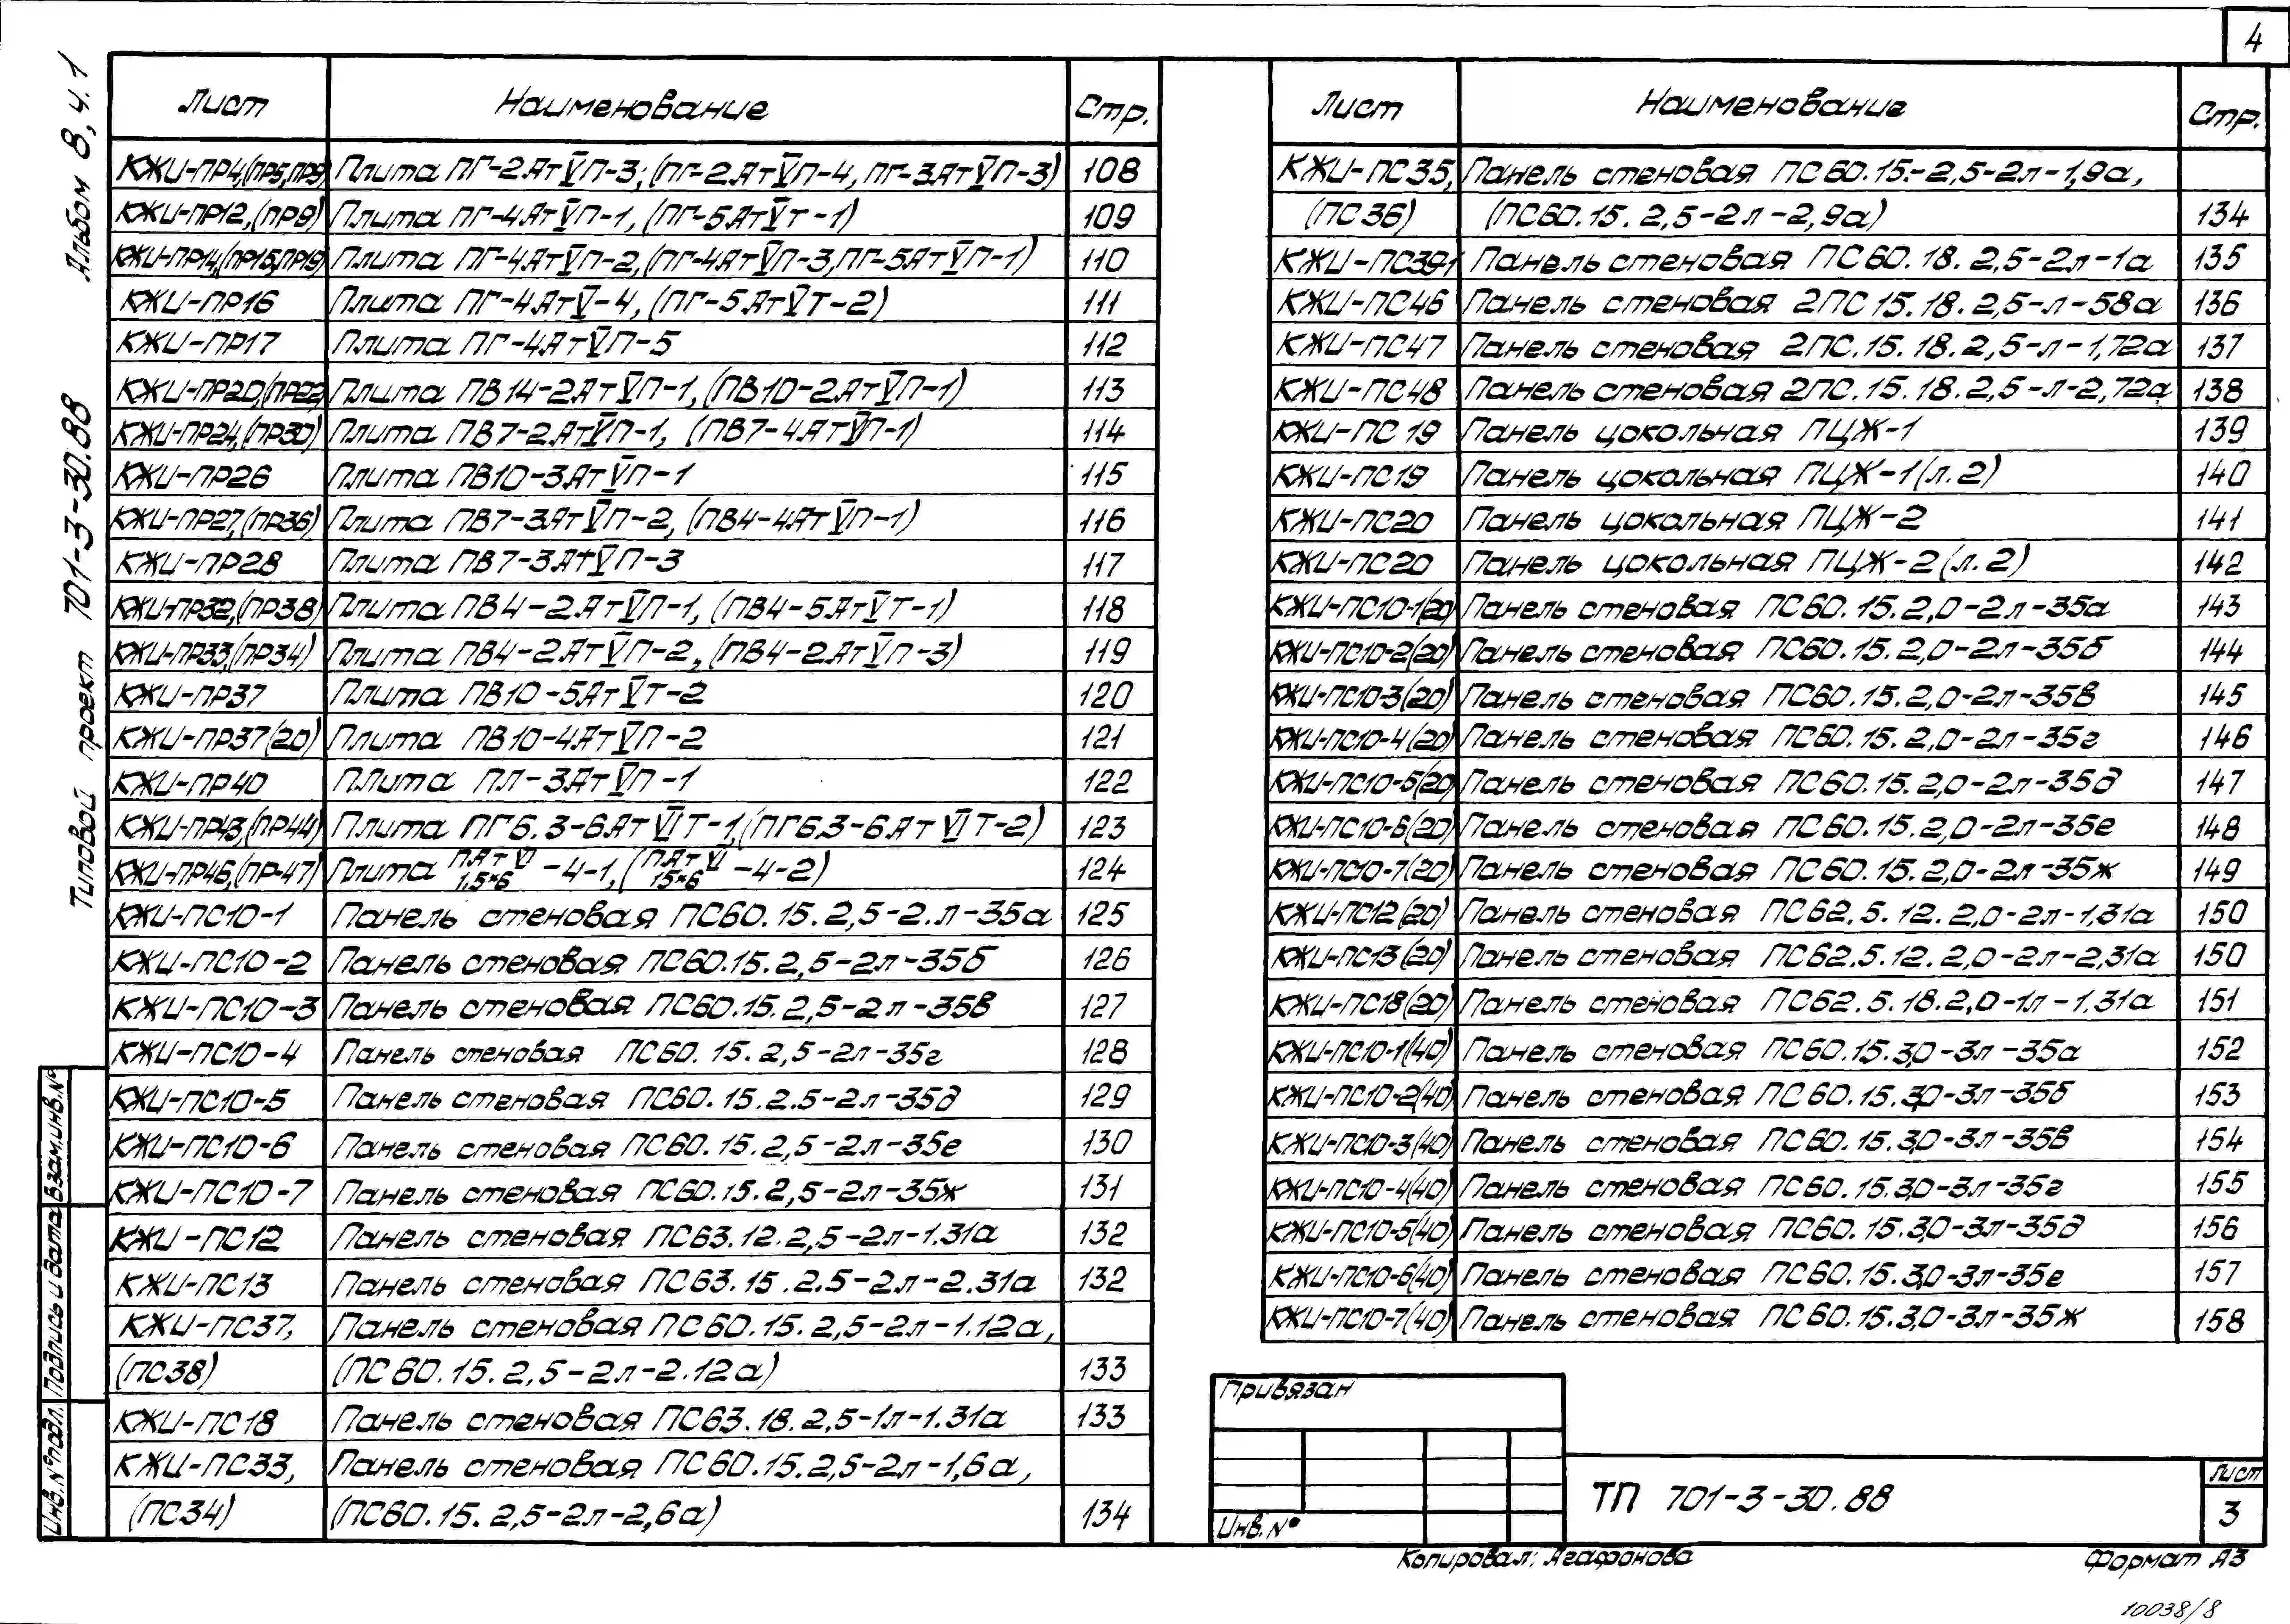 4
Альбом 8, ч.1
Типовой проект 701-3-30.88
Лист Наименование Стр.
КЖИ-ПР4,(ПР5,ПР9) Плита ПГ-2АтV̅П-3; (ПГ-2АтV̅П-4, ПГ-3АтV̅П-3) 108
КЖИ-ПР12,(ПР9) Плита ПГ-4АтV̅П-1, (ПГ-5АтV̅Т-1) 109
КЖИ-ПР14,(ПР15,ПР19) Плита ПГ-4АтV̅П-2,(ПГ-4АтV̅П-3,ПГ-5АтV̅П-1) 110
КЖИ-ПР16 Плита ПГ-4АтV̅-4, (ПГ-5АтV̅Т-2) 111
КЖИ-ПР17 Плита ПГ-4АтV̅П-5 112
КЖИ-ПР20,(ПР22) Плита ПВ14-2АтV̅П-1, (ПВ10-2АтV̅П-1) 113
КЖИ-ПР24,(ПР30) Плита ПВ7-2АтV̅П-1, (ПВ7-4АтV̅П-1) 114
КЖИ-ПР26 Плита ПВ10-3АтV̅П-1 115
КЖИ-ПР27,(ПР36) Плита ПВ7-3АтV̅П-2, (ПВ4-4АтV̅П-1) 116
КЖИ-ПР28 Плита ПВ7-3АтV̅П-3 117
КЖИ-ПР32,(ПР38) Плита ПВ4-2АтV̅П-1, (ПВ4-5АтV̅Т-1) 118
КЖИ-ПР33,(ПР34) Плита ПВ4-2АтV̅П-2, (ПВ4-2АтV̅П-3) 119
КЖИ-ПР37 Плита ПВ10-5АтV̅Т-2 120
КЖИ-ПР37(20) Плита ПВ10-4АтV̅П-2 121
КЖИ-ПР40 Плита ПЛ-3АтV̅П-1 122
КЖИ-ПР43,(ПР44) Плита ПГ6.3-6АтVIТ-1,(ПГ6,3-6АтVIТ-2) 123
КЖИ-ПР46,(ПР-47) Плита ПАтVI/1,5×6 -4-1, (ПАтVI/15×6 -4-2) 124
КЖИ-ПС10-1 Панель стеновая ПС60.15.2,5-2.л-35а 125
КЖИ-ПС10-2 Панель стеновая ПС60.15.2,5-2л-35б 126
КЖИ-ПС10-3 Панель стеновая ПС60.15.2,5-2л-35в 127
КЖИ-ПС10-4 Панель стеновая ПС60.15.2,5-2л-35г 128
КЖИ-ПС10-5 Панель стеновая ПС60.15.2.5-2л-35д 129
КЖИ-ПС10-6 Панель стеновая ПС60.15.2,5-2л-35е 130
КЖИ-ПС10-7 Панель стеновая ПС60.15.2,5-2л-35ж 131
КЖИ-ПС12 Панель стеновая ПС63.12.2,5-2л-1.31а 132
КЖИ-ПС13 Панель стеновая ПС63.15.2.5-2л-2.31а 132
КЖИ-ПС37, Панель стеновая ПС60.15.2,5-2л-1.12а,
(ПС38) (ПС60.15.2,5-2л-2.12а) 133
КЖИ-ПС18 Панель стеновая ПС63.18.2,5-1л-1.31а 133
КЖИ-ПС33, Панель стеновая ПС60.15.2,5-2л-1,6а,
(ПС34) (ПС60.15.2,5-2л-2,6а) 134
Лист Наименование Стр.
КЖИ-ПС35, Панель стеновая ПС60.15.-2,5-2л-1,9а,
(ПС36) (ПС60.15.2,5-2л-2,9а) 134
КЖИ-ПС39-1 Панель стеновая ПС60.18.2,5-2л-1а 135
КЖИ-ПС46 Панель стеновая 2ПС15.18.2,5-л-58а 136
КЖИ-ПС47 Панель стеновая 2ПС.15.18.2,5-л-1,72а 137
КЖИ-ПС48 Панель стеновая 2ПС.15.18.2,5-л-2,72а 138
КЖИ-ПС19 Панель цокольная ПЦЖ-1 139
КЖИ-ПС19 Панель цокольная ПЦЖ-1(л.2) 140
КЖИ-ПС20 Панель цокольная ПЦЖ-2 141
КЖИ-ПС20 Панель цокольная ПЦЖ-2(л.2) 142
КЖИ-ПС10-1(20) Панель стеновая ПС60.15.2,0-2л-35а 143
КЖИ-ПС10-2(20) Панель стеновая ПС60.15.2,0-2л-35б 144
КЖИ-ПС10-3(20) Панель стеновая ПС60.15.2,0-2л-35в 145
КЖИ-ПС10-4(20) Панель стеновая ПС60.15.2,0-2л-35г 146
КЖИ-ПС10-5(20) Панель стеновая ПС60.15.2,0-2л-35д 147
КЖИ-ПС10-6(20) Панель стеновая ПС60.15.2,0-2л-35е 148
КЖИ-ПС10-7(20) Панель стеновая ПС60.15.2,0-2л-35ж 149
КЖИ-ПС12(20) Панель стеновая ПС62.5.12.2,0-2л-1,31а 150
КЖИ-ПС13(20) Панель стеновая ПС62.5.12.2,0-2л-2,31а 150
КЖИ-ПС18(20) Панель стеновая ПС62.5.18.2,0-1л-1.31а 151
КЖИ-ПС10-1(40) Панель стеновая ПС60.15.3,0-3л-35а 152
КЖИ-ПС10-2(40) Панель стеновая ПС60.15.3,0-3л-35б 153
КЖИ-ПС10-3(40) Панель стеновая ПС60.15.3,0-3л-35в 154
КЖИ-ПС10-4(40) Панель стеновая ПС60.15.3,0-3л-35г 155
КЖИ-ПС10-5(40) Панель стеновая ПС60.15.3,0-3л-35д 156
КЖИ-ПС10-6(40) Панель стеновая ПС60.15.3,0-3л-35е 157
КЖИ-ПС10-7(40) Панель стеновая ПС60.15.3,0-3л-35ж 158
Взам.инв.№
Подпись и дата
Инв.№подл.
Привязан
Инв.№
ТП 701-3-30.88
Лист
3
Копировал: Агафонова
Формат А3
10038/8